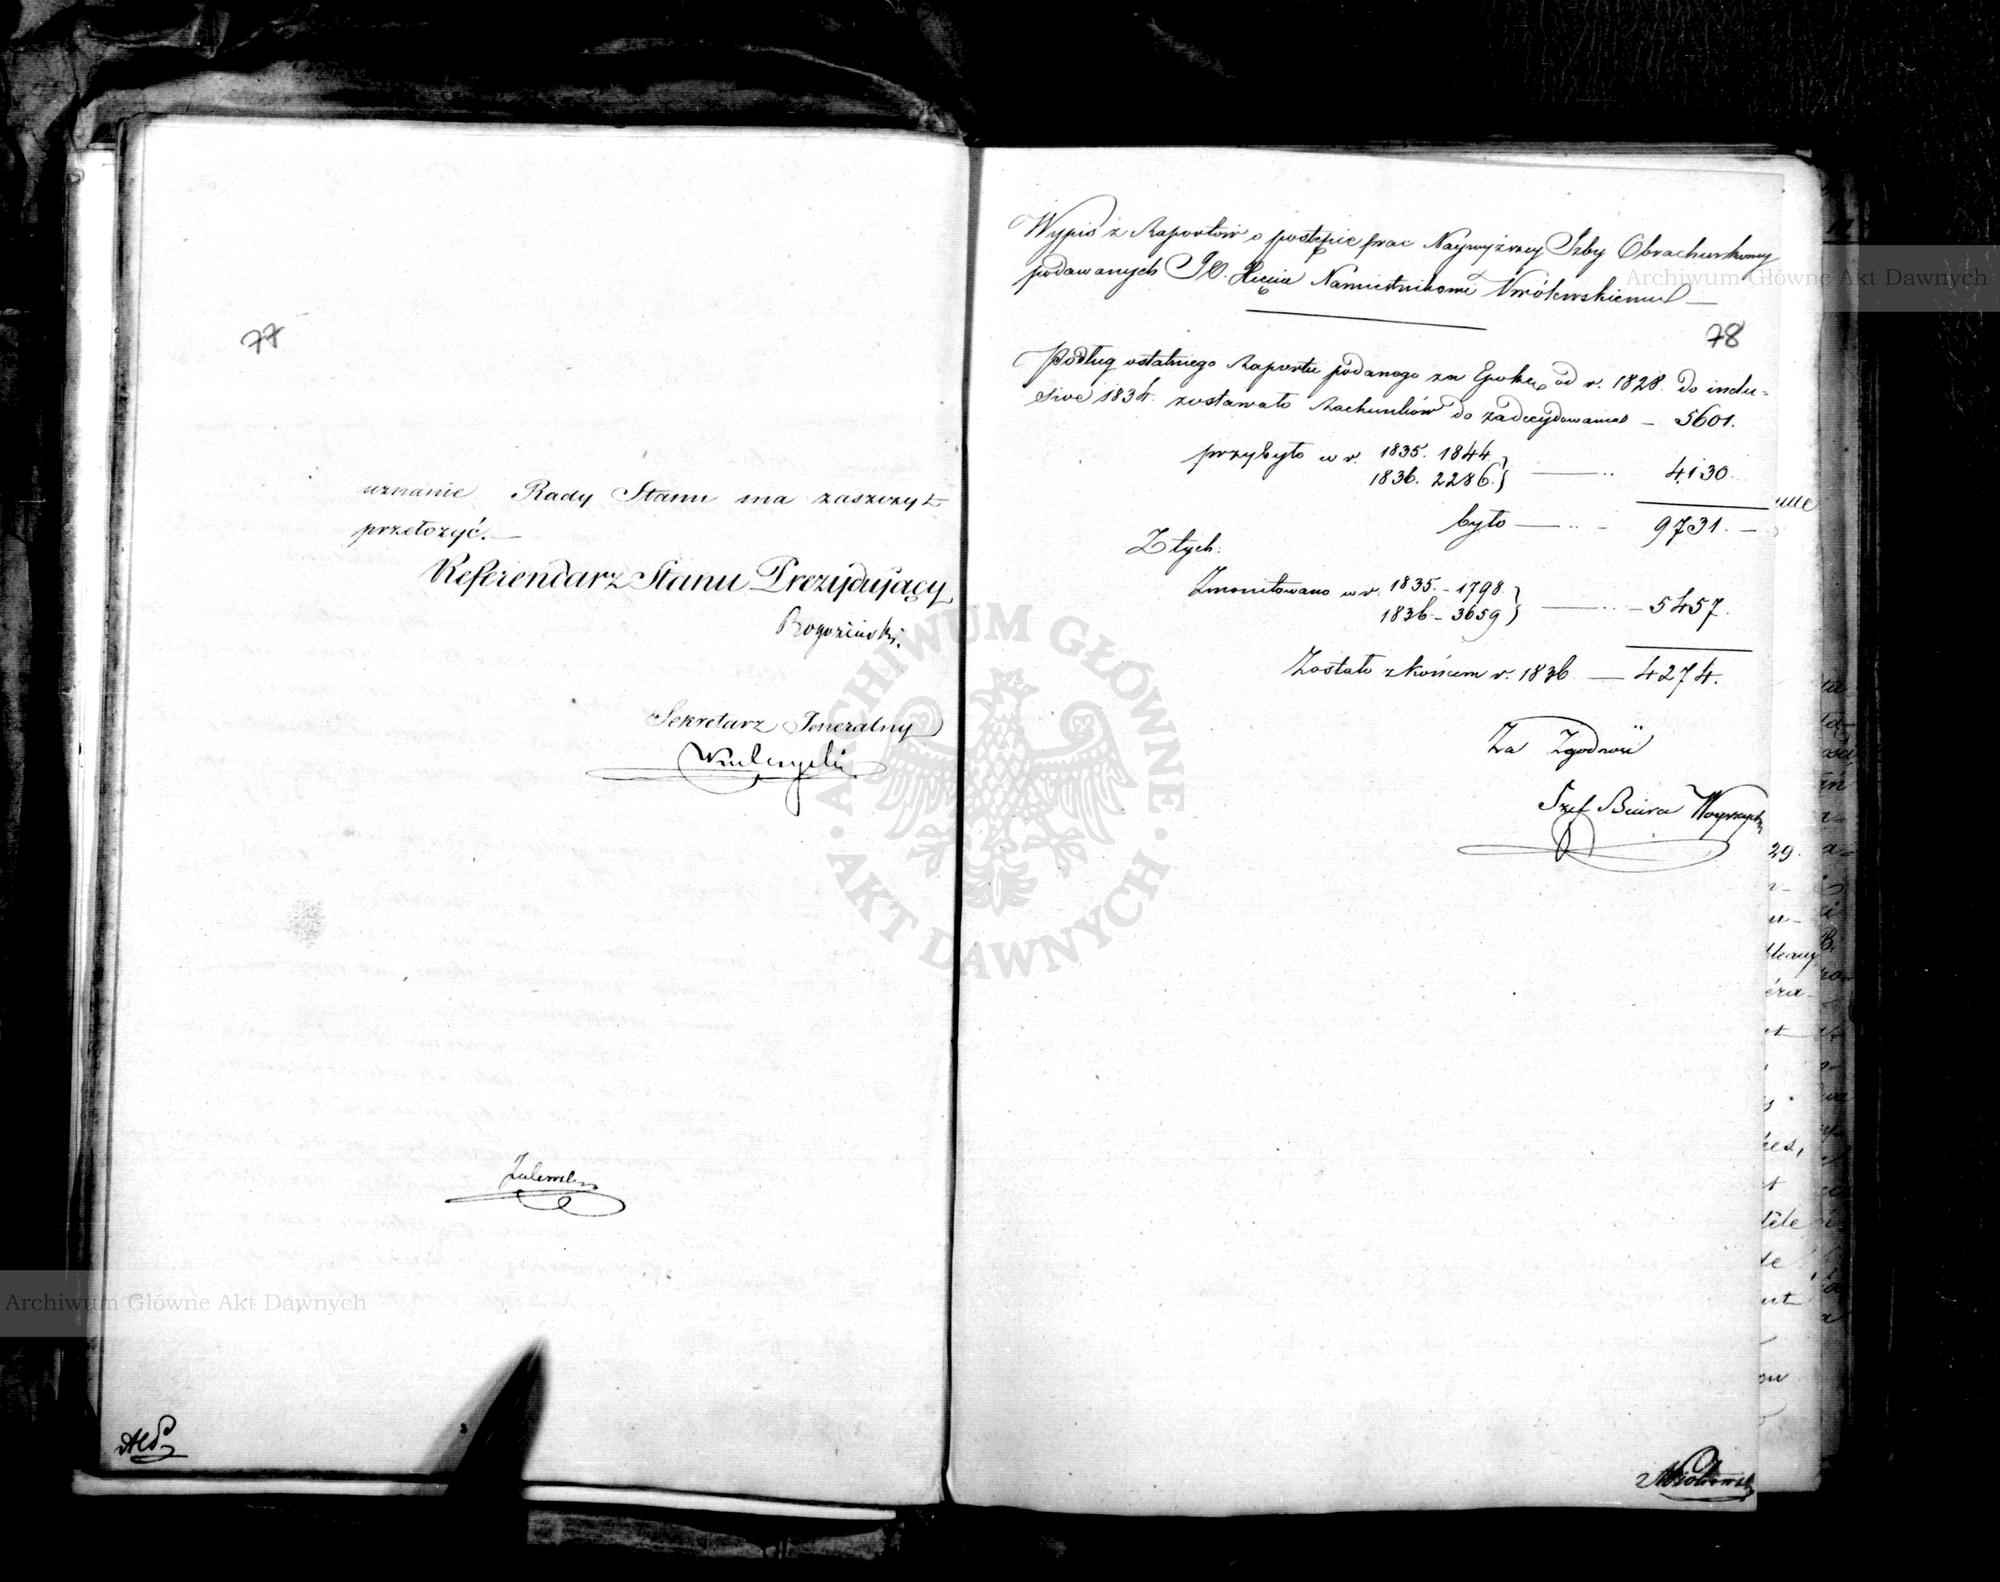 77
uznanie Rady Stanu ma zaszczyt
przełożyć.—
Referendarz Stanu Prezydujący
Rogoziński.
Sekretarz Jeneralny
Zalewski
Wypis z Raportów o postępie prac Naywyższey Izby Obrachunkowey
podawanych J.O. Xięciu Namiestnikowi Królewskiemu —
78
Podług ostatniego Raportu podanego za Epokę od r. 1828. do inclu=
sive 1834. zostawało Rachunków do zadecydowania — 5601.
przybyło w r. 1835. 1844.
1836. 2286. } —— 4130.
było — 9731. —
Z tych:
Zmonitowano w r. 1835. - 1798.
1836 - 3659 } —— 5457.
Zostało z końcem r. 1836 — 4274.
Za Zgodność
Szef Biura
29.
ARCHIWUM GŁÓWNE AKT DAWNYCH
Archiwum Główne Akt Dawnych
Archiwum Główne Akt Dawnych